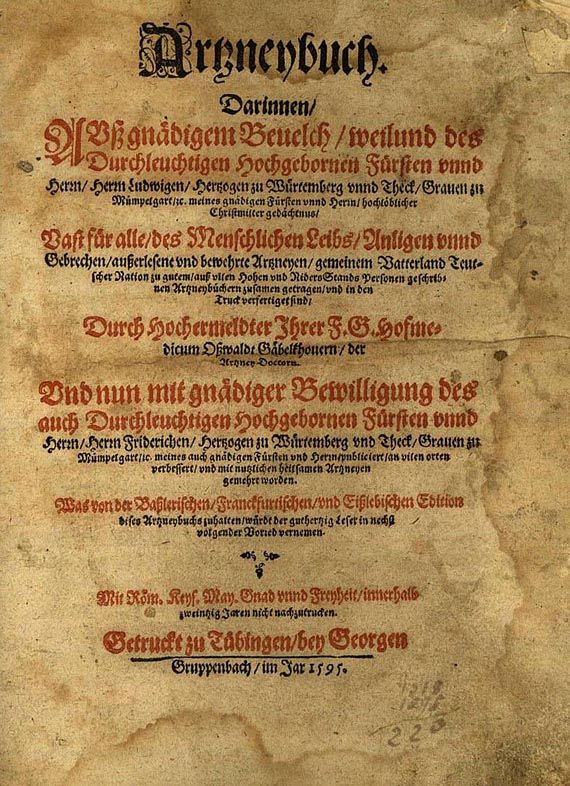 Artzneybuch.
Darinnen/
Auß gnädigem Beuelch/ weilund des
Durchleuchtigen Hochgebornen Fürsten vnnd
Herrn/ Herrn Ludwigen/ Hertzogen zu Würtemberg vnnd Theck/ Grauen zu
Mümpelgart/ ꝛc. meines gnädigen Fürsten vnnd Herrn/ hochlöblicher
Christmilter gedächtnus/
Vast für alle/ des Menschlichen Leibs/ Anligen vnnd
Gebrechen/ außerlesene vnd bewehrte Artzneyen/ gemeinem Vatterland Teut-
scher Nation zu gutem/ auß vilen Hohen vnd Niders Stands Personen geschrib-
nen Artzneybüchern zusamen getragen/ vnd in den
Truck verfertiget sind/
Durch Hochermeldter Ihrer F. G. Hofme-
dicum Oßwaldt Gäbelkhouern/ der
Artzney Doctorn.
Vnd nun mit gnädiger Bewilligung des
auch Durchleuchtigen Hochgebornen Fürsten vnnd
Herrn/ Herrn Friderichen/ Hertzogen zu Würtemberg vnd Theck/ Grauen zu
Mümpelgart/ ꝛc. meines auch gnädigen Fürsten vnd Herrn/ publiciert/ an vilen orten
verbessert/ vnd mit nutzlichen heilsamen Artzneyen
gemehrt worden.
Was von der Baßlerischen/ Franckfurtischen/ vnd Eißlebischen Edition
dises Artzneybuchs zuhalten/ würdt der guthertzig Leser in nechst
volgender Vorred vernemen.
Mit Röm. Keys. May. Gnad vnnd Freyheit/ innerhalb
zweintzig Jaren nicht nachzutrucken.
Getruckt zu Tübingen/ bey Georgen
Gruppenbach/ im Jar 1595.
220